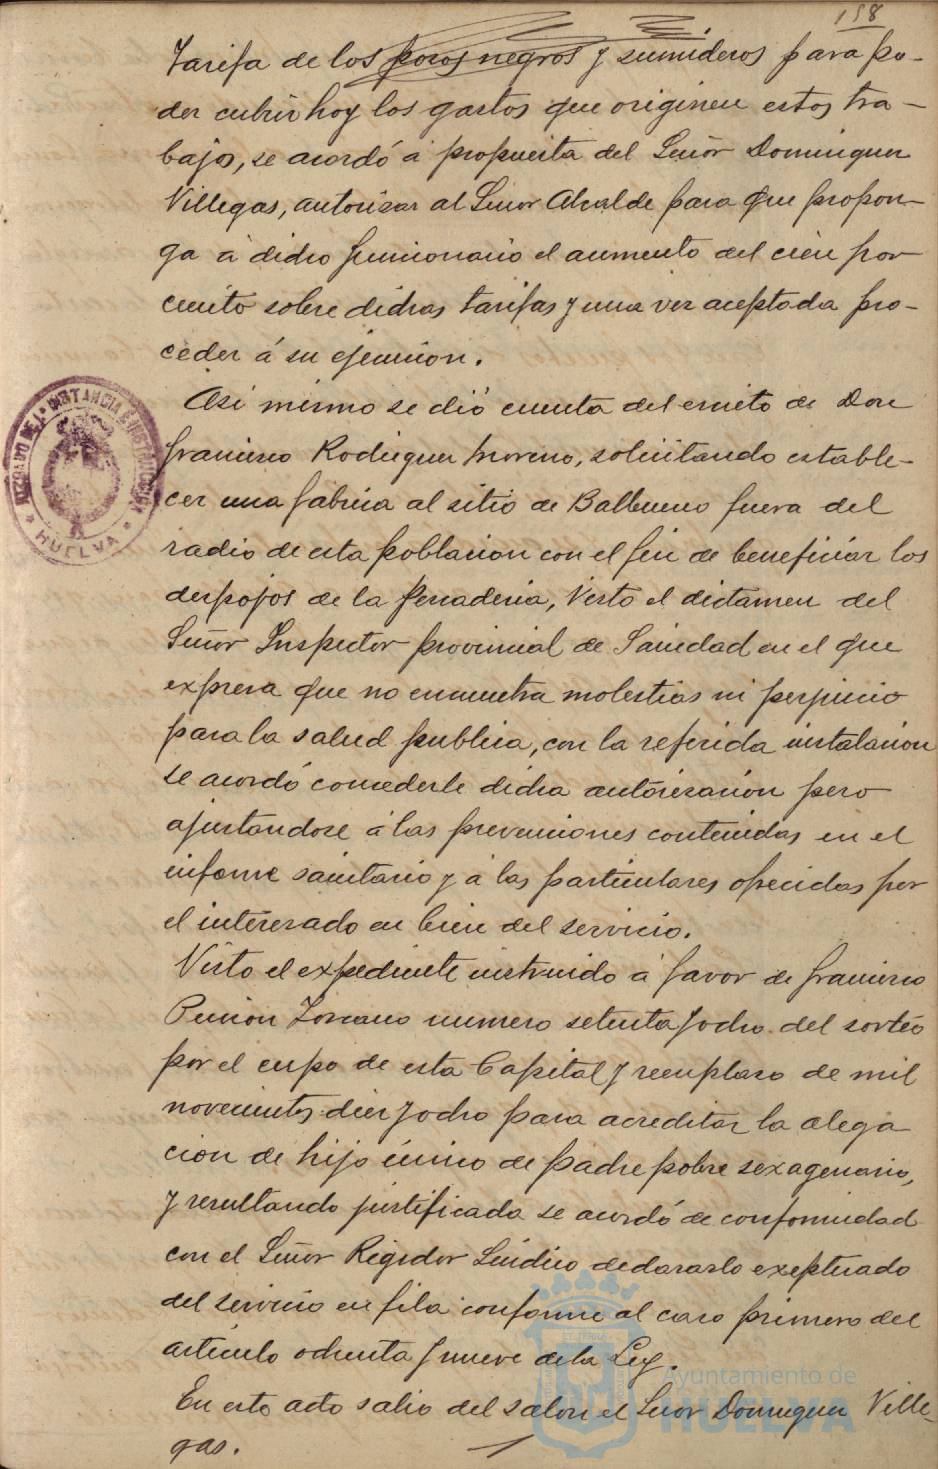 158
Tarifa de los posos negros y sumideros para po-
der cubrir hoy los gastos que originen estos tra-
bajos, se acordó á propuesta del Señor Dominguez
Villegas, autorizar al Señor Alcalde para que propon-
ga á dicho funcionario el aumento del cien por
ciento sobre dichas tarifas y una vez aceptada pro-
ceder á su ejecucion.
Asi mismo se dió cuenta del escrito de Don
Francisco Rodriguez Moreno, solicitando estable-
cer una fábrica al sitio de Balbueno fuera del
radio de esta poblacion con el fin de beneficiar los
despojos de la pescaderia, Visto el dictamen del
Señor Inspector provincial de Sanidad en el que
expresa que no encuentra molestias ni perjuicio
para la salud publica, con la referida instalacion
se acordó concederle dicha autorizacion pero
ajustandose á las prevenciones contenidas en el
informe sanitario y á las particulares ofrecidas por
el interesado en bien del servicio.
Visto el expediente instruido á favor de Francisco
Toscano numero setenta y ocho del sorteo
por el cupo de esta Capital y reemplazo de mil
novecientos diez y ocho para acreditar la alega
cion de hijo único de padre pobre sexagenario,
y resultando justificada se acordó de conformidad
con el Señor Regidor Sindico declararlo exeptuado
del servicio en fila conforme al caso primero del
articulo ochenta y nueve de la Ley.
En esto acto salio del salon el Señor Dominguez Ville-
gas.
JUZGADO DE 1ª INSTANCIA É INSTRUCCION
HUELVA
Ayuntamiento de
HUELVA